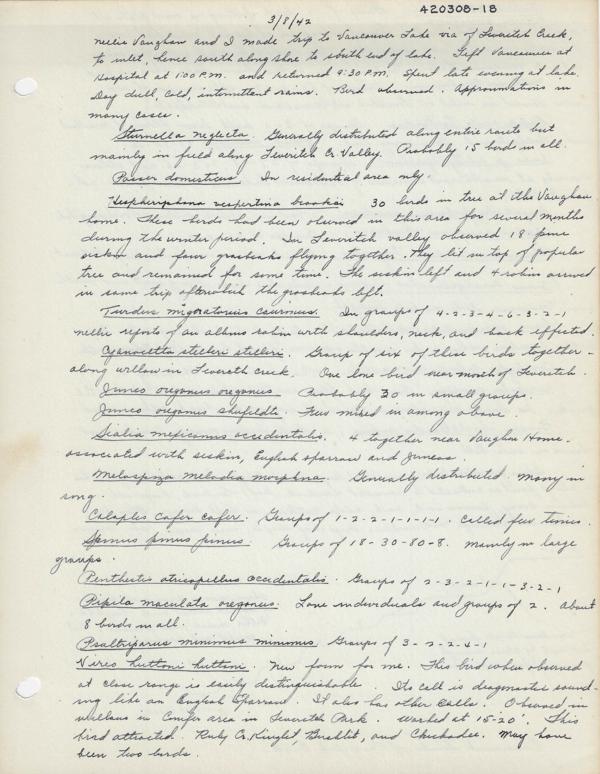 420308-18
3/8/42
Nellie Vaughan and I made trip to Vancouver Lake via of Leveritch Creek,
to inlet, hence south along shore to south end of lake. Left Vancouver at
Hospital at 1:00 P.M. and returned 9:30 P.M. Spent late evening at lake.
Day dull, cold, intermittent rains. Bird observed. Approximations in
many cases.
Sturnella neglecta. Generally distributed along entire route but
mainly in field along Leveritch Cr. Valley. Probably 15 bird in all.
Passer domesticus In residential area only.
Hespheriphona vespertina brooksi 30 birds in tree at the Vaughan
home. These birds had been observed in this area for several months
during the winter period. In Leveritch valley observed 18 pine
siskin and four grosbeaks flying together. They lit in top of popular
tree and remained for some time. The siskin left and 4 robin arrived
in same trip afterwhich the grosbeaks left.
Turdus migratorius caurinus. In groups of 4-2-3-4-6-3-2-1
Nellie reports of an albino robin with shoulders, neck, and back effected.
Cyanocitta stelleri stelleri. Group of six of these birds together -
along willow in Levereth Creek. One lone bird near mouth of Leveritch.
Junco oreganus oreganus Probably 30 in small groups.
Junco oreganus shufeldti. Few mixed in among above.
Sialia mexicanus occidentalis. 4 together near Vaughn Home.
associated with siskin, English sparrow and Juncos.
Melospiza melodia morphna. Generally distributed. Many in
song.
Colaptes cafer cafer. Groups of 1-2-2-1-1-1-1. Called few times.
Spinus pinus pinus. Groups of 18-30-80-8. Mainly in large
groups.
Penthestes atricapillus occidentalis. Groups of 2-3-2-1-1-3-2-1
Pipila maculata oregonus. Lone individuals and groups of 2. About
8 birds in all.
Psaltriparus minimus minimus. Groups of 3-2-2-4-1
Vireo huttoni huttoni. New form for me. This bird when observed
at close range is easily distinguishable. Its call is diagnostic sound-
ing like an English Sparrow. It also has other calls. Observed in
willows in Conifer area in Leveritch Park. Worked at 15-20'. This
bird attracted Ruby Cr. Kinglet, Bushtit, and Chickadee. May have
been two birds.